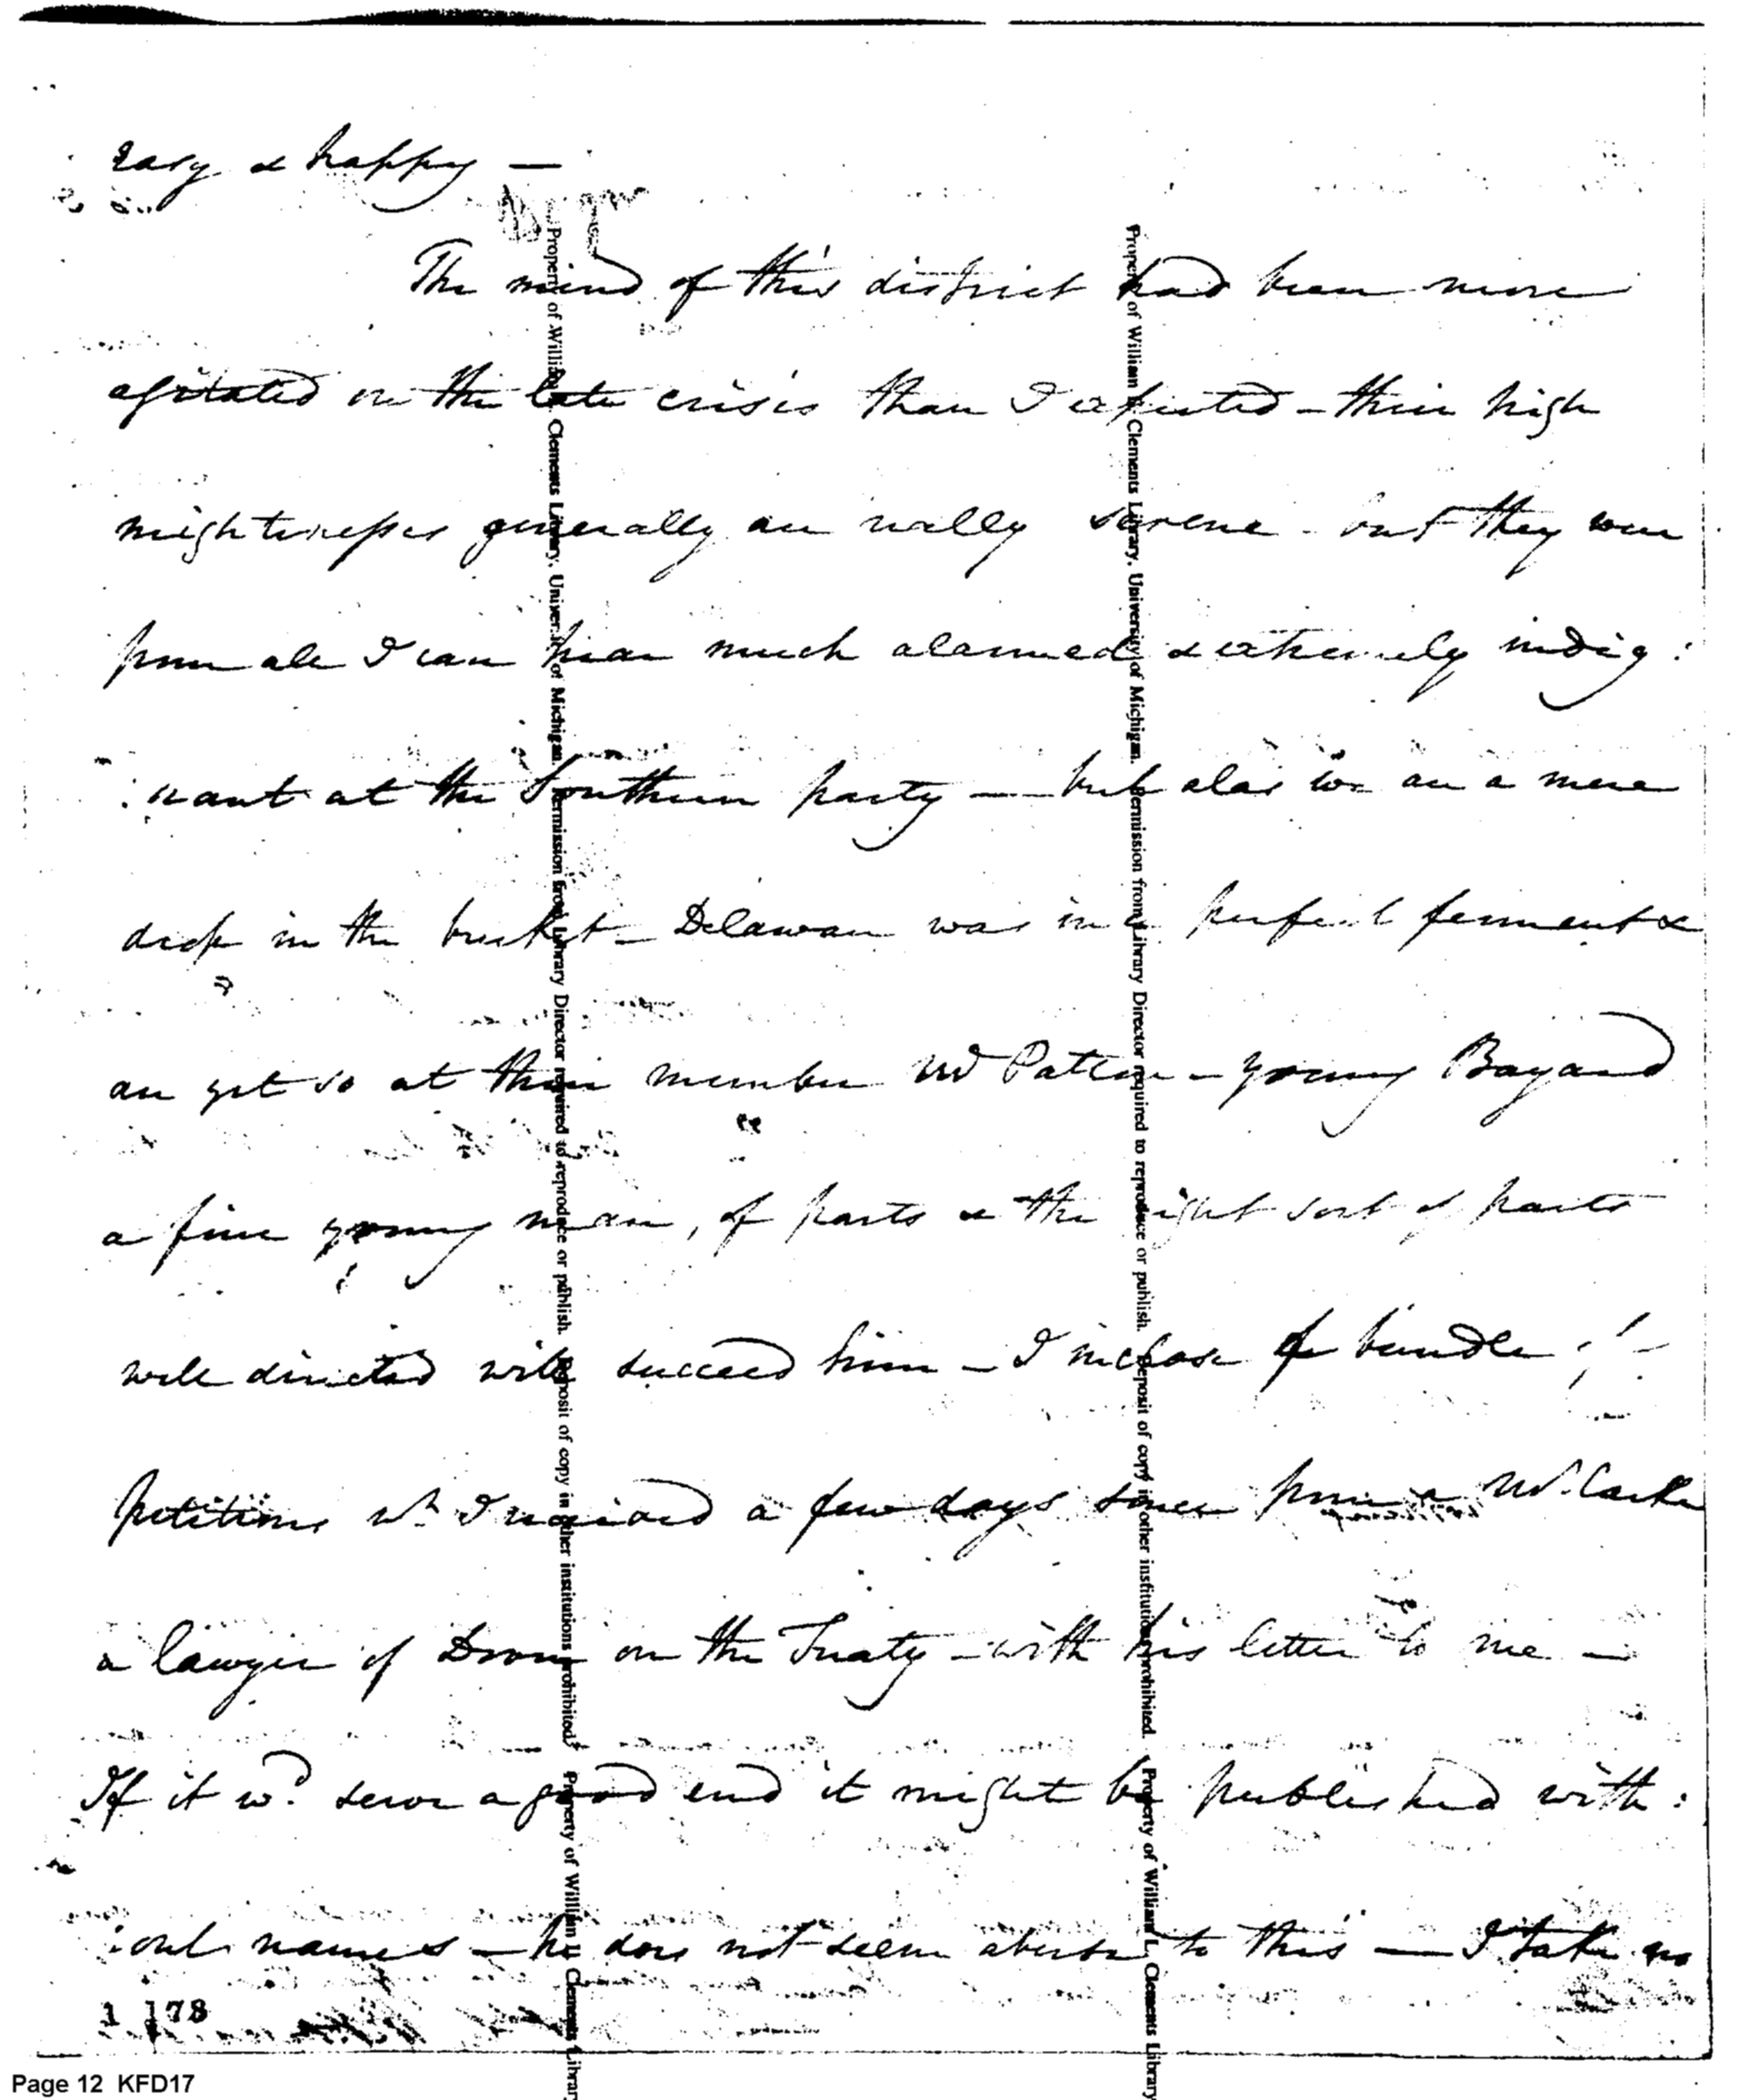 easy & happy —
The mind of this district had been more
agitated on the late crisis than I expected – their high
mightinesses generally are really serene – but they were
from all I can hear much alarmed & extremely indig:
:nant at the Southern party — but alas we are a mere
drop in the bucket – Delaware was in a perfect ferment &
are yet so at their member Mr Patten – young Bayard
a fine young man, of parts & the right sort of parts
well directed will succeed him – I inclose bundle
petitions wh I received a few days since from a Mr.
a lawyer of Dover on the Treaty – with his letter to me —
If it wd. serve a good end it might be published with:
:out names – he does not seem averse to this — I take no
1 178
Page 12 KFD17
Property of William L. Clements Library, University of Michigan. Permission from Library Director required to reproduce or publish. Deposit of copy in other institutions prohibited. Property of William L. Clements Library
Property of William L. Clements Library, University of Michigan. Permission from Library Director required to reproduce or publish. Deposit of copy in other institutions prohibited. Property of William L. Clements Library